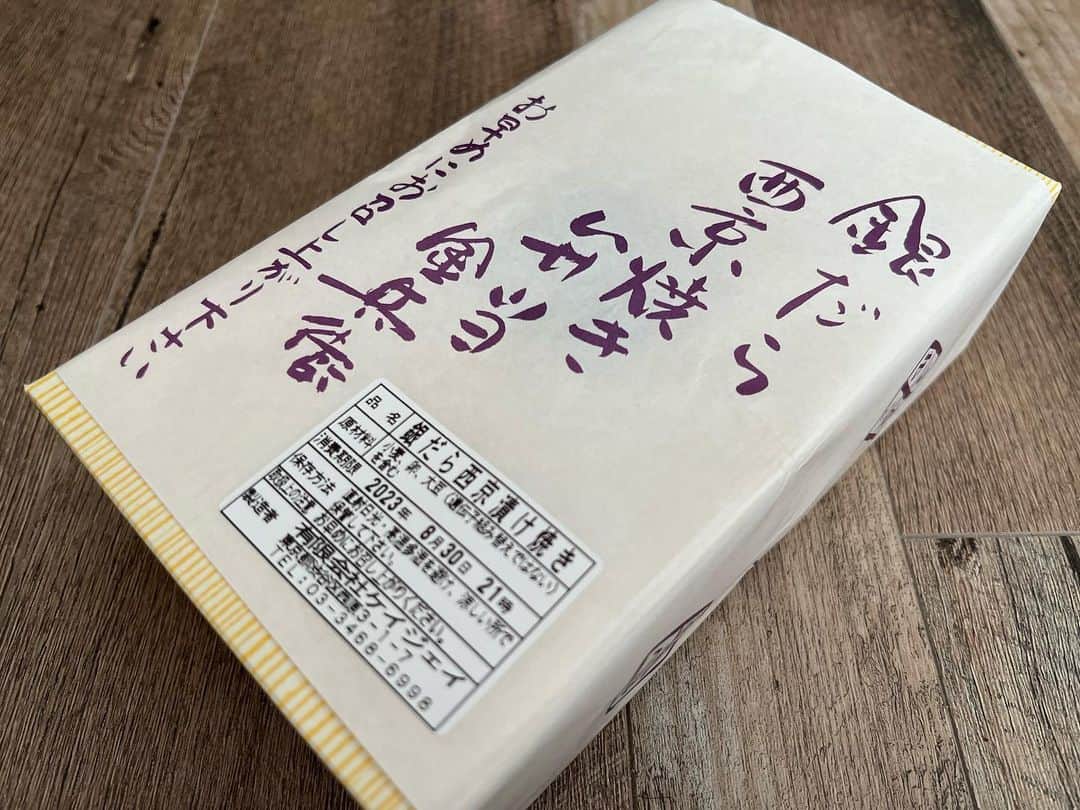 銀だら
西京焼き
弁当
金兵衛
お早めにお召し上がり下さい
品名 銀だら西京漬け焼き
原材料 小麦、卵、大豆(遺伝子組み替えではない)
を含む
消費期限 2023年 8月30日 21時
保存方法 直射日光・高温多湿を避け、涼しい所で
保管して下さい。
取扱上の注意 お早めにお召し上がりください。
製造者 有限会社ケイジェイ
東京都渋谷区西原3-1-7
TEL:03-3468-6998